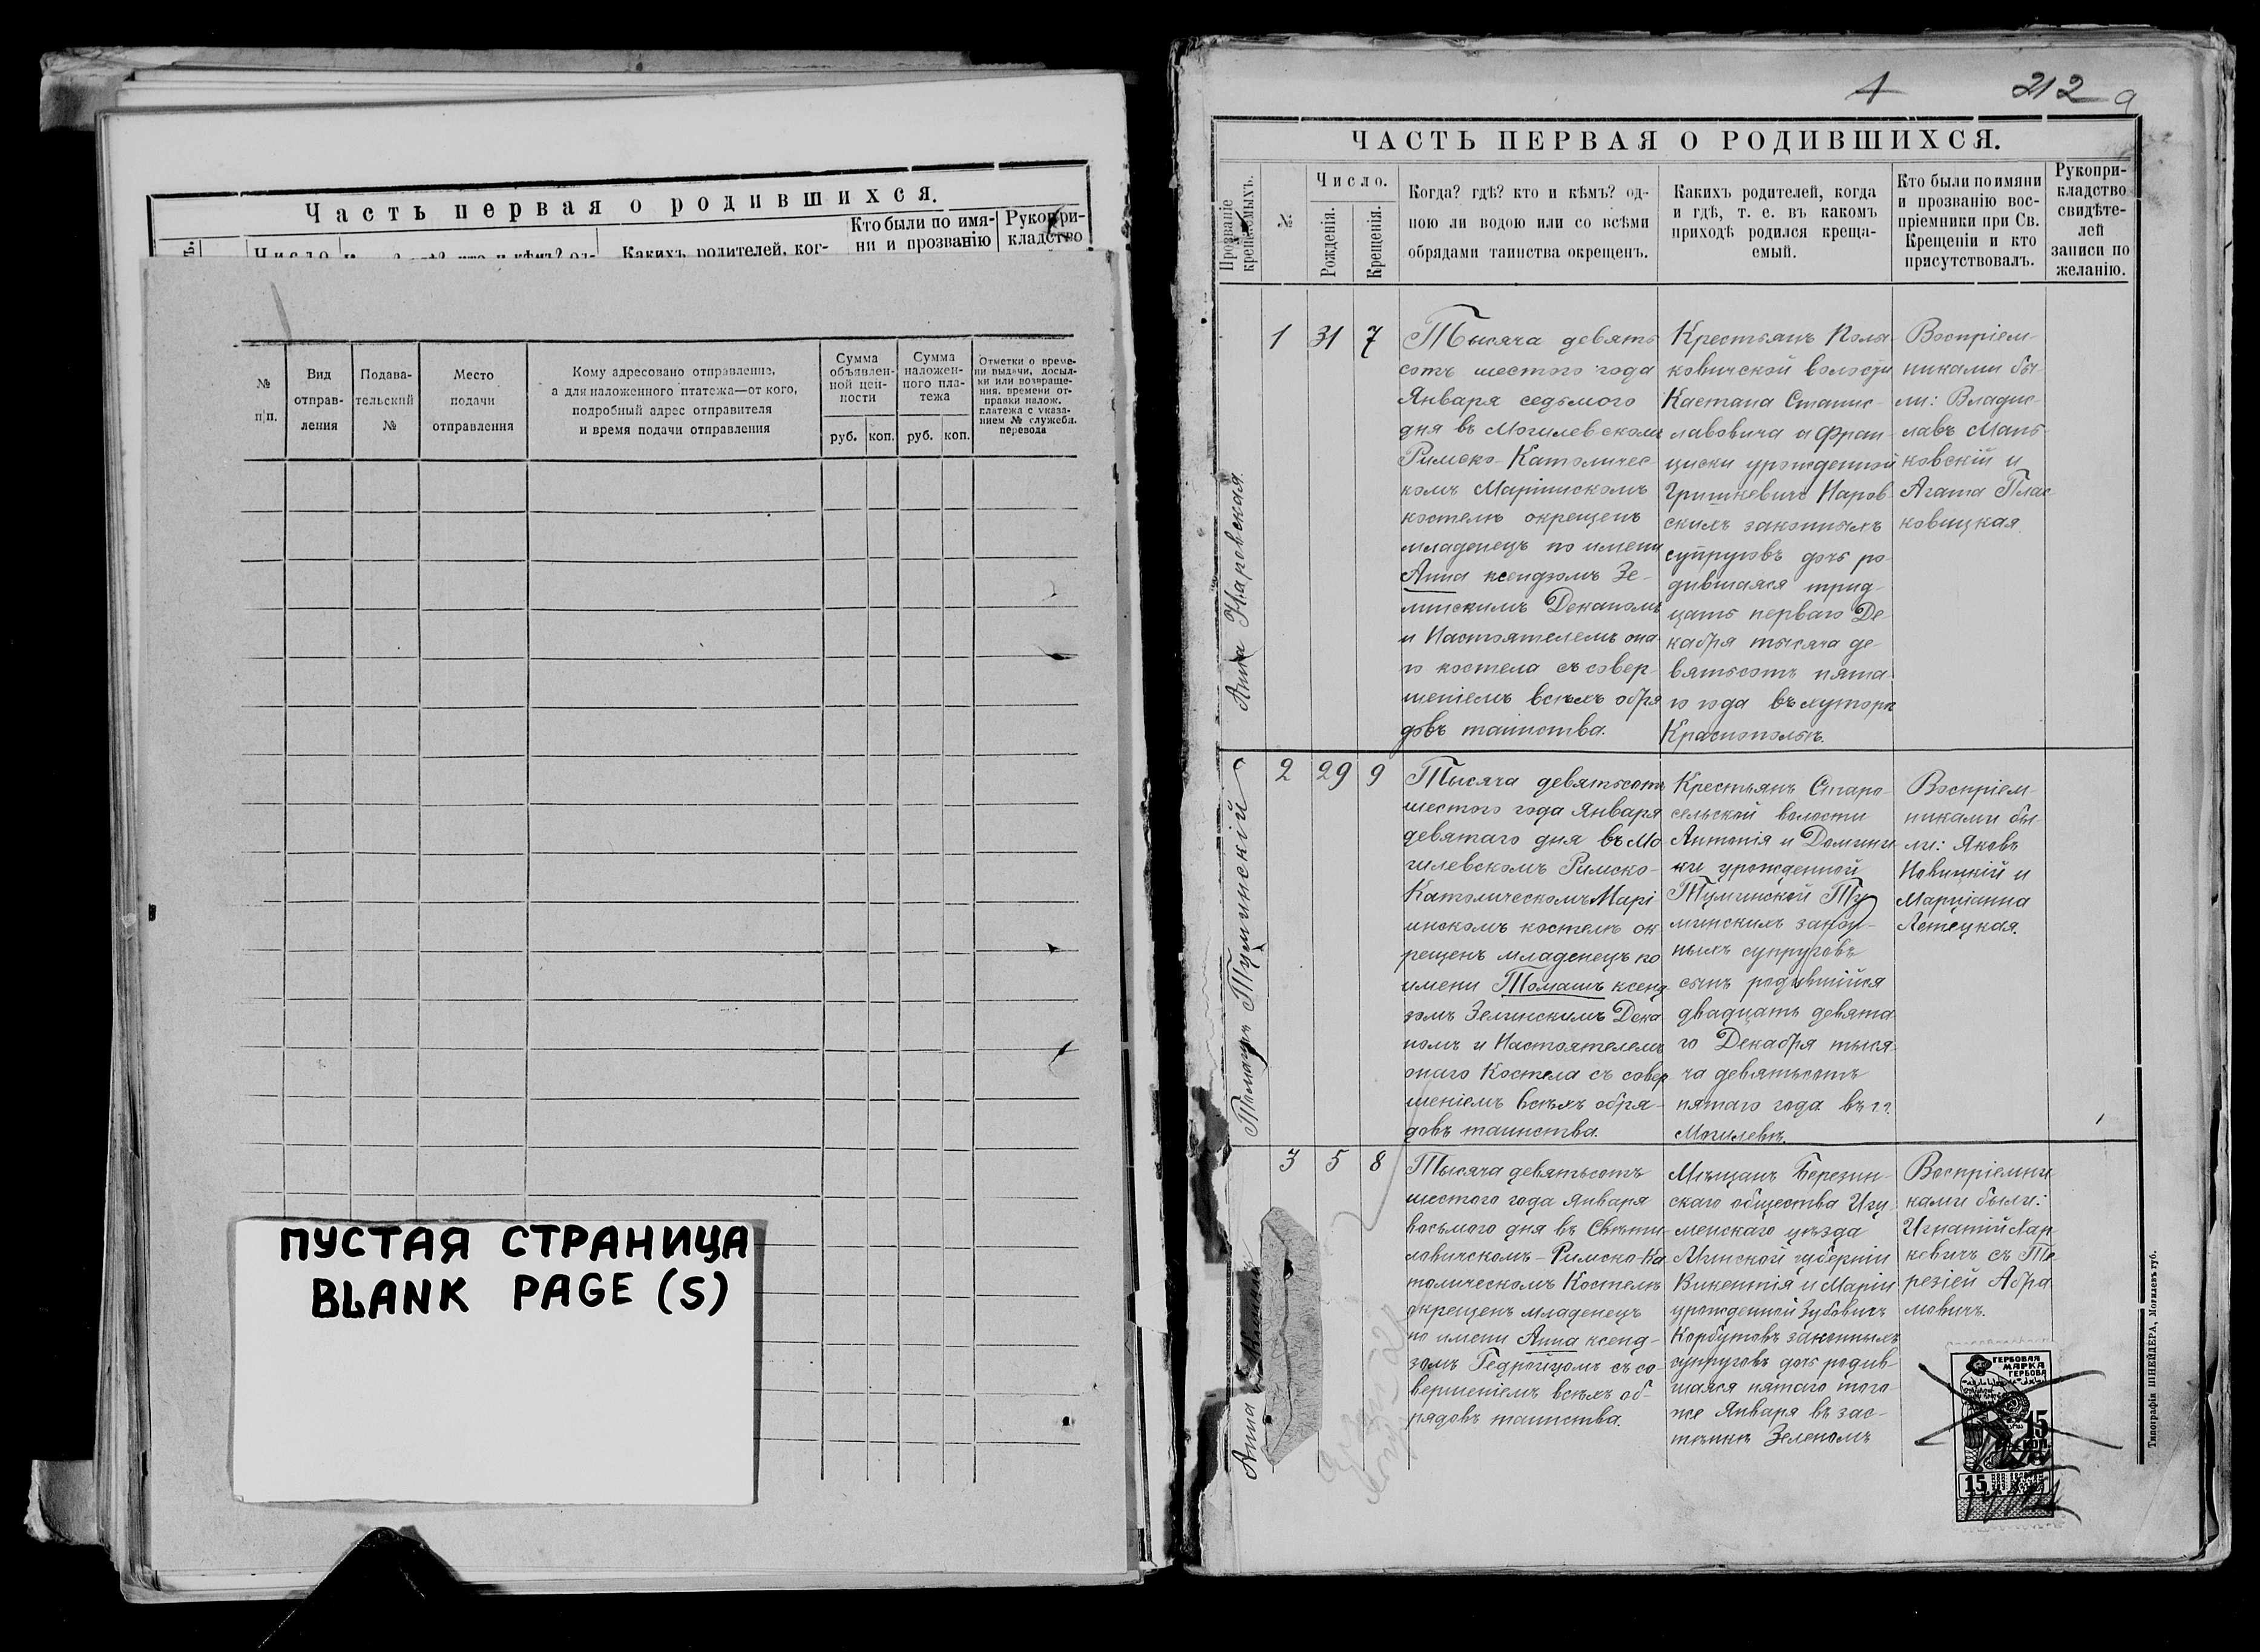 Часть первая о родившихся.
Число
Каких родителей, ког-
Кто были по имя-
ни и прозванію
Рукопри-
кладство
№
п|п.
Вид
отправ-
ления
Подава-
тельский
№
Место
подачи
отправления
Кому адресовано отправление,
а для наложенного платежа—от кого,
подробный адрес отправителя
и время подачи отправления
Сумма
объявлен-
ной цен-
ности
руб. коп.
Сумма
наложен-
ного пла-
тежа
руб. коп.
Отметки о време-
ни выдачи, досыл-
ки или возвраще-
ния, времени от-
правки налож.
платежа с указа-
нием № служебн.
перевода
ПУСТАЯ СТРАНИЦА
BLANK PAGE (S)
1 212 9
ЧАСТЬ ПЕРВАЯ О РОДИВШИХСЯ.
Прозваніе
крещаемыхъ.
№
Число.
Рожденія.
Крещенія.
Когда? гдѣ? кто и кѣмъ? од-
ною ли водою или со всѣми
обрядами таинства окрещенъ.
Какихъ родителей, когда
и гдѣ, т. е. въ какомъ
приходѣ родился креща-
емый.
Кто были по имяни
и прозванію вос-
пріемники при Св.
Крещеніи и кто
присутствовалъ.
Рукопри-
кладство
свидѣте-
лей
записи по
желанію.
Анна Наревская.
1 31 7
Тысяча девять
сотъ шестого года
Января седьмого
дня въ Могилевскомъ
Римско-Католичес-
комъ Маріинскомъ
костелѣ окрещенъ
младенецъ по имени
Анна ксендзомъ Зе-
линскимъ Деканомъ
и Настоятелемъ она-
го костела съ совер-
шеніемъ всѣхъ обря
довъ таинства.
Крестьянъ Полы
ковичской волости
Каетана Станис-
лавовича и Фран-
циски урожденной
Гришкевичъ Наров-
скихъ законныхъ
супруговъ дочь ро-
дившаяся трид-
цать перваго Де-
кабря тысяча де-
вятьсотъ пята-
го года въ хуторѣ
Краснопольѣ.
Воспріем-
никами бы-
ли: Владис-
лавъ Мань-
ковскій и
Агата Плас-
ковицкая
Томашъ Туминскій
2 29 9
Тысяча девятьсотъ
шестого года Января
девятаго дня въ Мо
гилевскомъ Римско-
Католическомъ Марі
инскомъ костелѣ ок
рещенъ младенецъ по
имени Томашъ ксенд
зомъ Зелинскимъ Дека
номъ и Настоятелемъ
онаго Костела съ совер
шеніемъ всѣхъ обря-
довъ таинства.
Крестьянъ Старо-
сельской волости
Антонія и Домини
ки урожденной
Туминской Ту
минскихъ закон-
ныхъ супруговъ
сынъ родившійся
двадцать девята
го Декабря тыся-
ча девятьсотъ
пятаго года въ г.
Могилевѣ.
Воспріем-
никами бы-
ли: Яковъ
Новицкій и
Марціанна
Летецкая.
Анна
3 5 8
Тысяча девятьсотъ
шестого года Января
восьмого дня въ Свѣти
ловичскомъ-Римско-Ка
толическомъ Костелѣ
окрещенъ младенецъ
по имени Анна ксенд-
зомъ Гедройцомъ съ со-
вершеніемъ всѣхъ об-
рядовъ таинства.
Мѣщанъ Березин-
скаго общества Игу-
менскаго уѣзда
Минской губерніи
Викентія и Маріи
урожденной Зубовичъ
Корбутовъ законныхъ
супруговъ дочь родив-
шаяся пятаго того-
же Января въ зас-
тѣнкѣ Зеленомъ
Воспріемни
ками были:
Игнатій Лар
кевичъ съ Те
резіей Абра
мовичъ.
ГЕРБОВАЯ
МАРКА
ГЕРБОВА
15
КОП.
15
Типографія ШНЕЙДЕРА, Могилевъ губ.